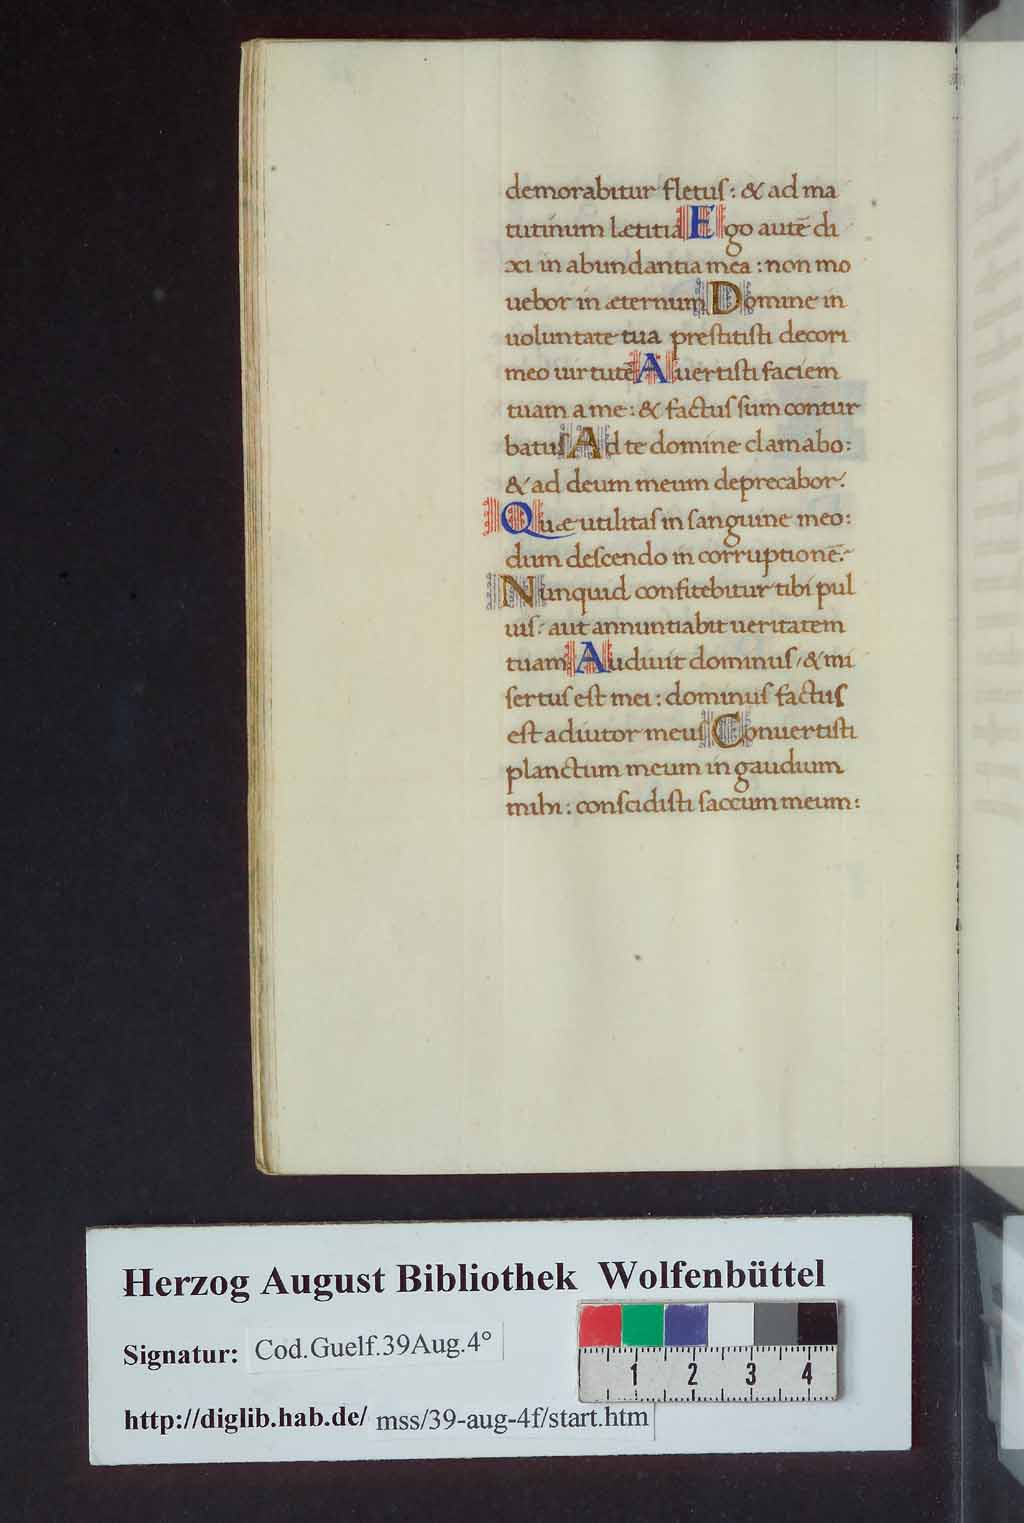 demorabitur fletuſ: & ad ma
tutinum lætitia Ego autē di
xi in abundantia mea: non mo
uebor in æternum Domine in
uoluntate tua preſtitiſti decori
meo uirtutē Auertiſti faciem
tuam a me: & factuſ ſum contur
batuſ Ad te domine clamabo:
& ad deum meum deprecabor.
Quæ utilitaſ in ſanguine meo:
dum deſcendo in corruptionē.
Nunquid confitebitur tibi pul
uiſ: aut annuntiabit ueritatem
tuam Audiuit dominuſ, & mi
ſertuſ eſt mei: dominuſ factuſ
eſt adiutor meuſ Conuertiſti
planctum meum in gaudium
mihi: conſcidiſti ſaccum meum:
Herzog August Bibliothek Wolfenbüttel
Signatur: Cod.Guelf.39Aug.4°
1 2 3 4
http://diglib.hab.de/ mss/39-aug-4f/start.htm